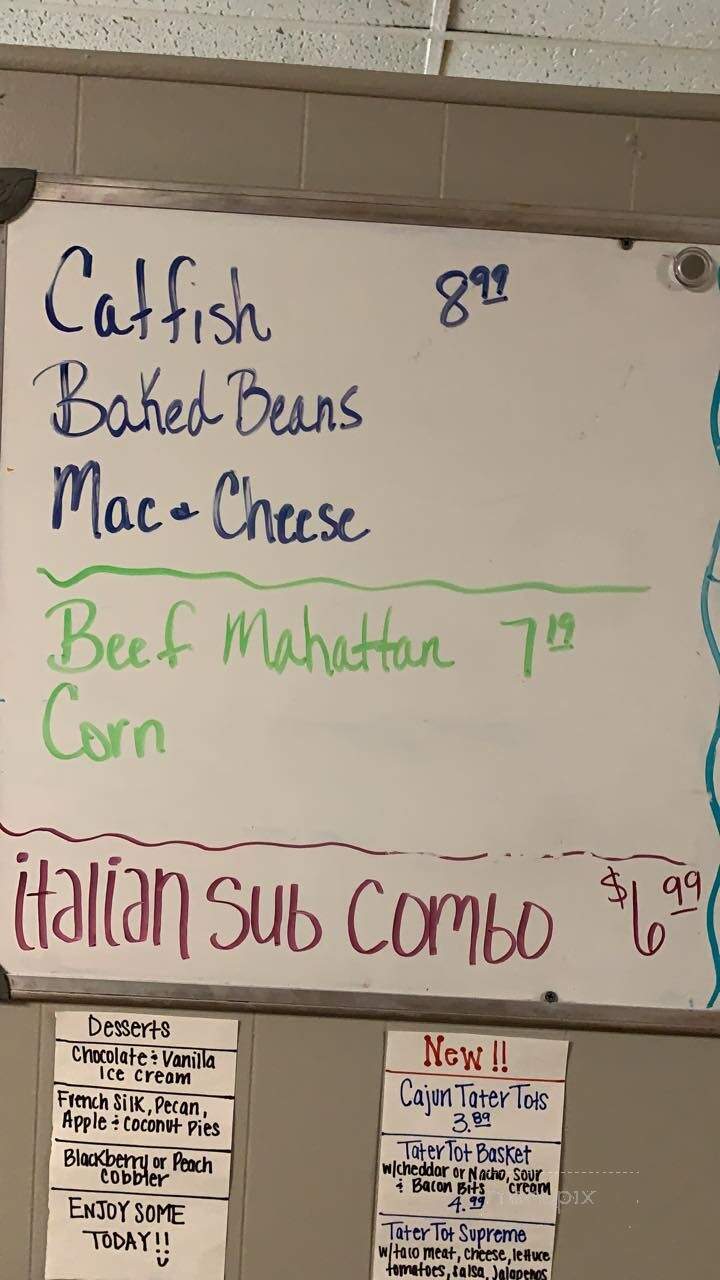 Catfish 8 99
Baked Beans
Mac & Cheese
Beef Mahattan 7 19
Corn
italian sub combo $6 99
Desserts
Chocolate & Vanilla
Ice cream
French Silk, Pecan,
Apple & Coconut Pies
Blackberry or Peach
Cobbler
ENJOY SOME
TODAY!!
New!!
Cajun Tater Tots
3.89
Tater Tot Basket
w/cheddar or Nacho, sour
& Bacon Bits cream
4.99
Tater Tot Supreme
w/taco meat, cheese, lettuce
tomatoes, salsa, Jalapenos